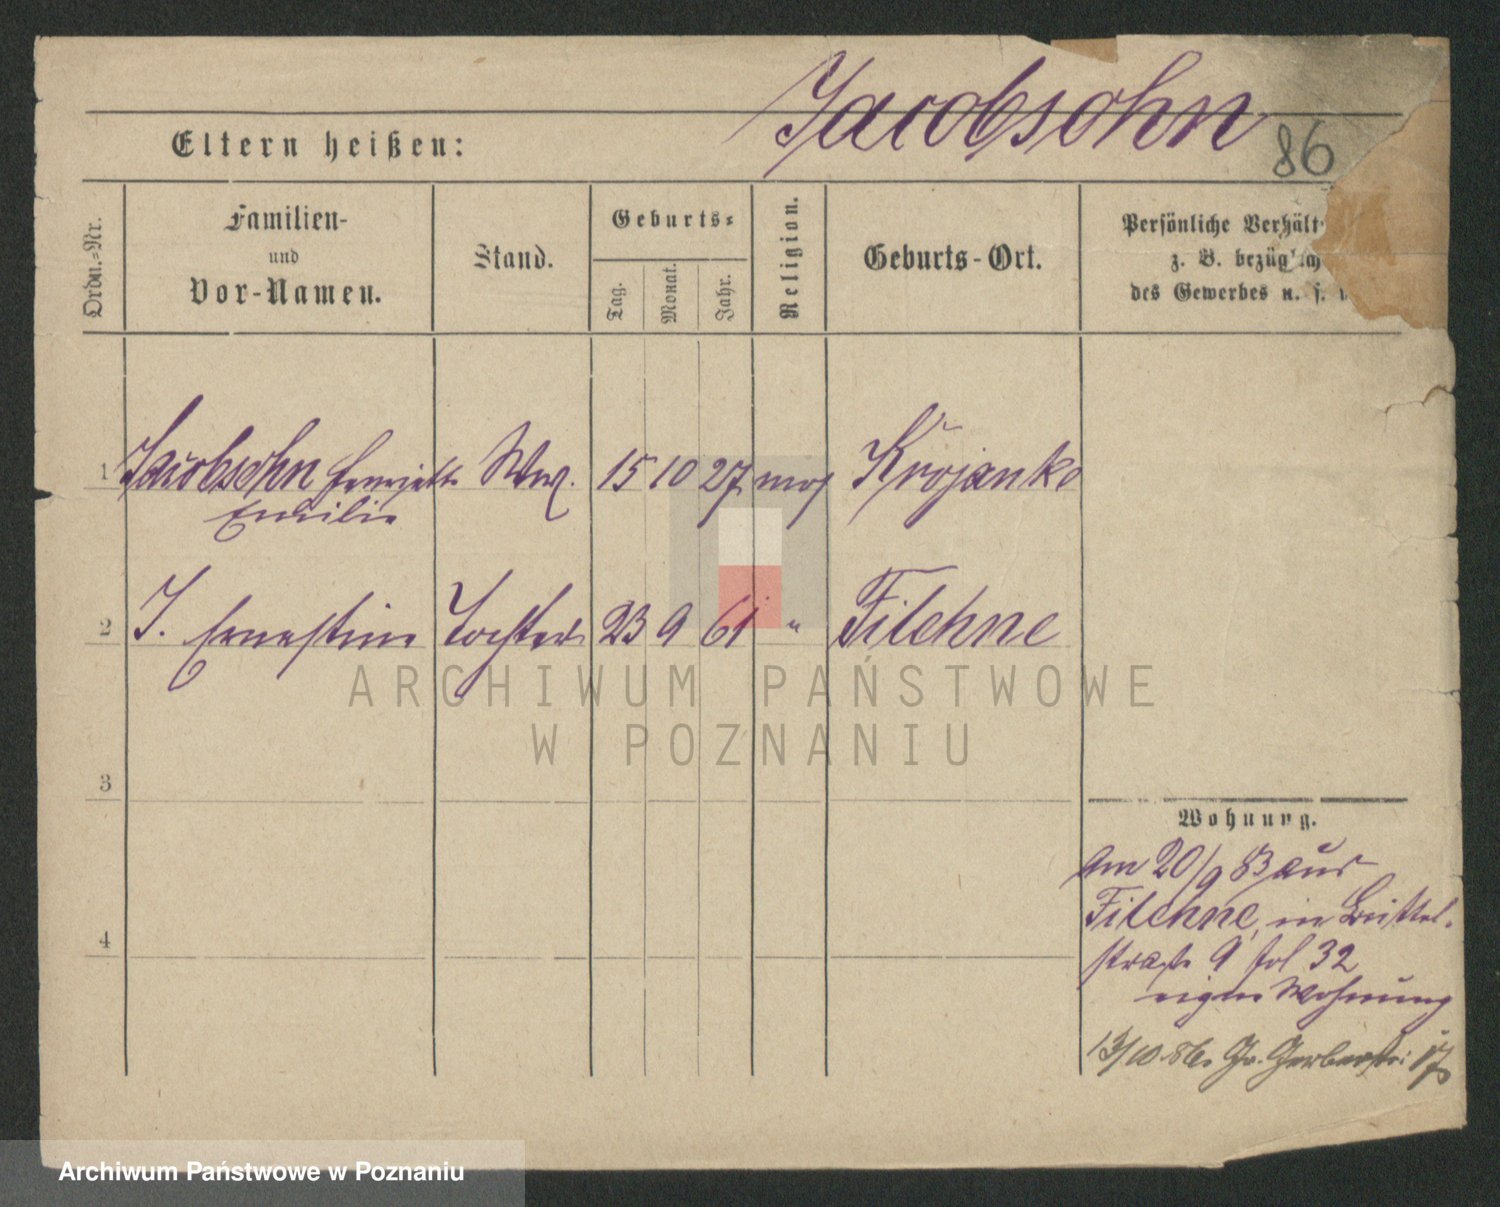 Jacobsohn
86
Eltern heißen:
Ordn.-Nr.
Familien-
und
Vor-Namen.
Stand.
Geburts-
Tag.
Monat.
Jahr.
Religion.
Geburts-Ort.
Persönliche Verhält
z. B. bezüglich
des Gewerbes u. s.
1 Jacobsohn Henriette Ww. 15 10 27 mos Krojanke
Emilie
2 J. Ernestine Tochter 23 9 61 " Filehne
3
4
Wohnung.
Am 20/9 83 aus
Filehne, in Büttel-
straße 9 fol 32
eigene Wohnung
13/10 86. Gr. Gerberstr. 17
ARCHIWUM PAŃSTWOWE
W POZNANIU
Archiwum Państwowe w Poznaniu